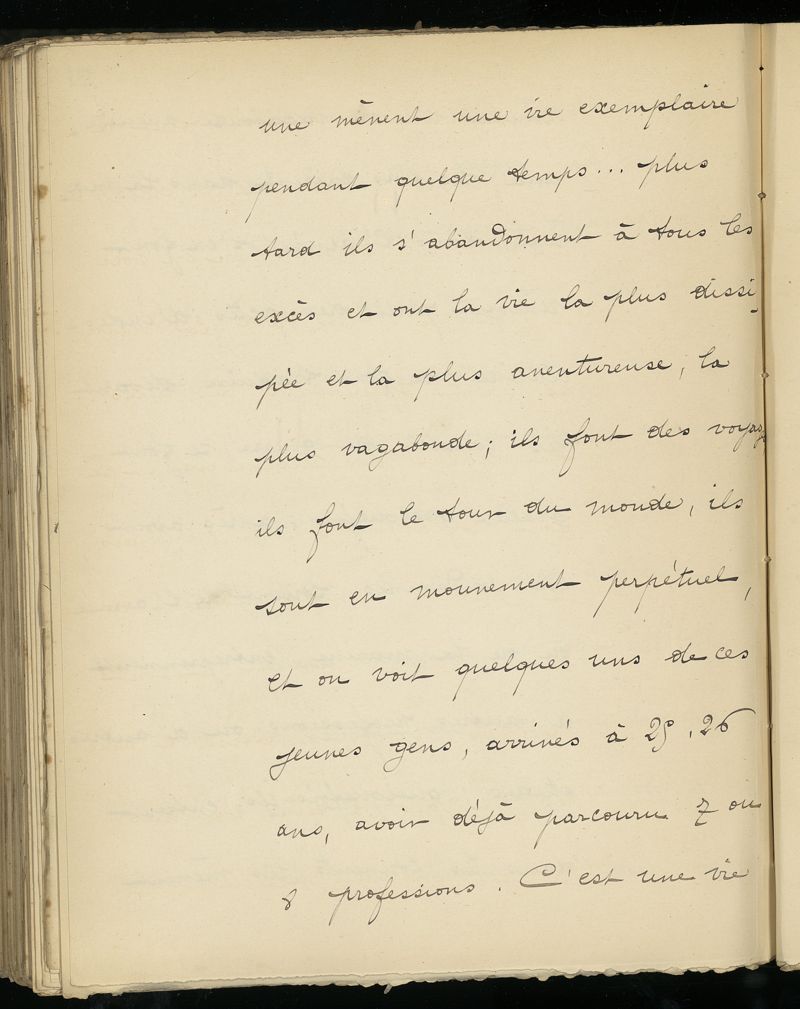 une mènent une vie exemplaire
pendant quelque temps... plus
tard ils s'abandonnent à tous les
excès et ont la vie la plus dissi-
pée et la plus aventureuse, la
plus vagabonde; ils font des voyag
ils font le tour du monde, ils
sont en mouvement perpétuel,
et on voit quelques uns de ces
jeunes gens, arrivés à 25, 26
ans, avoir déjà parcouru 7 ou
8 professions. C'est une vie